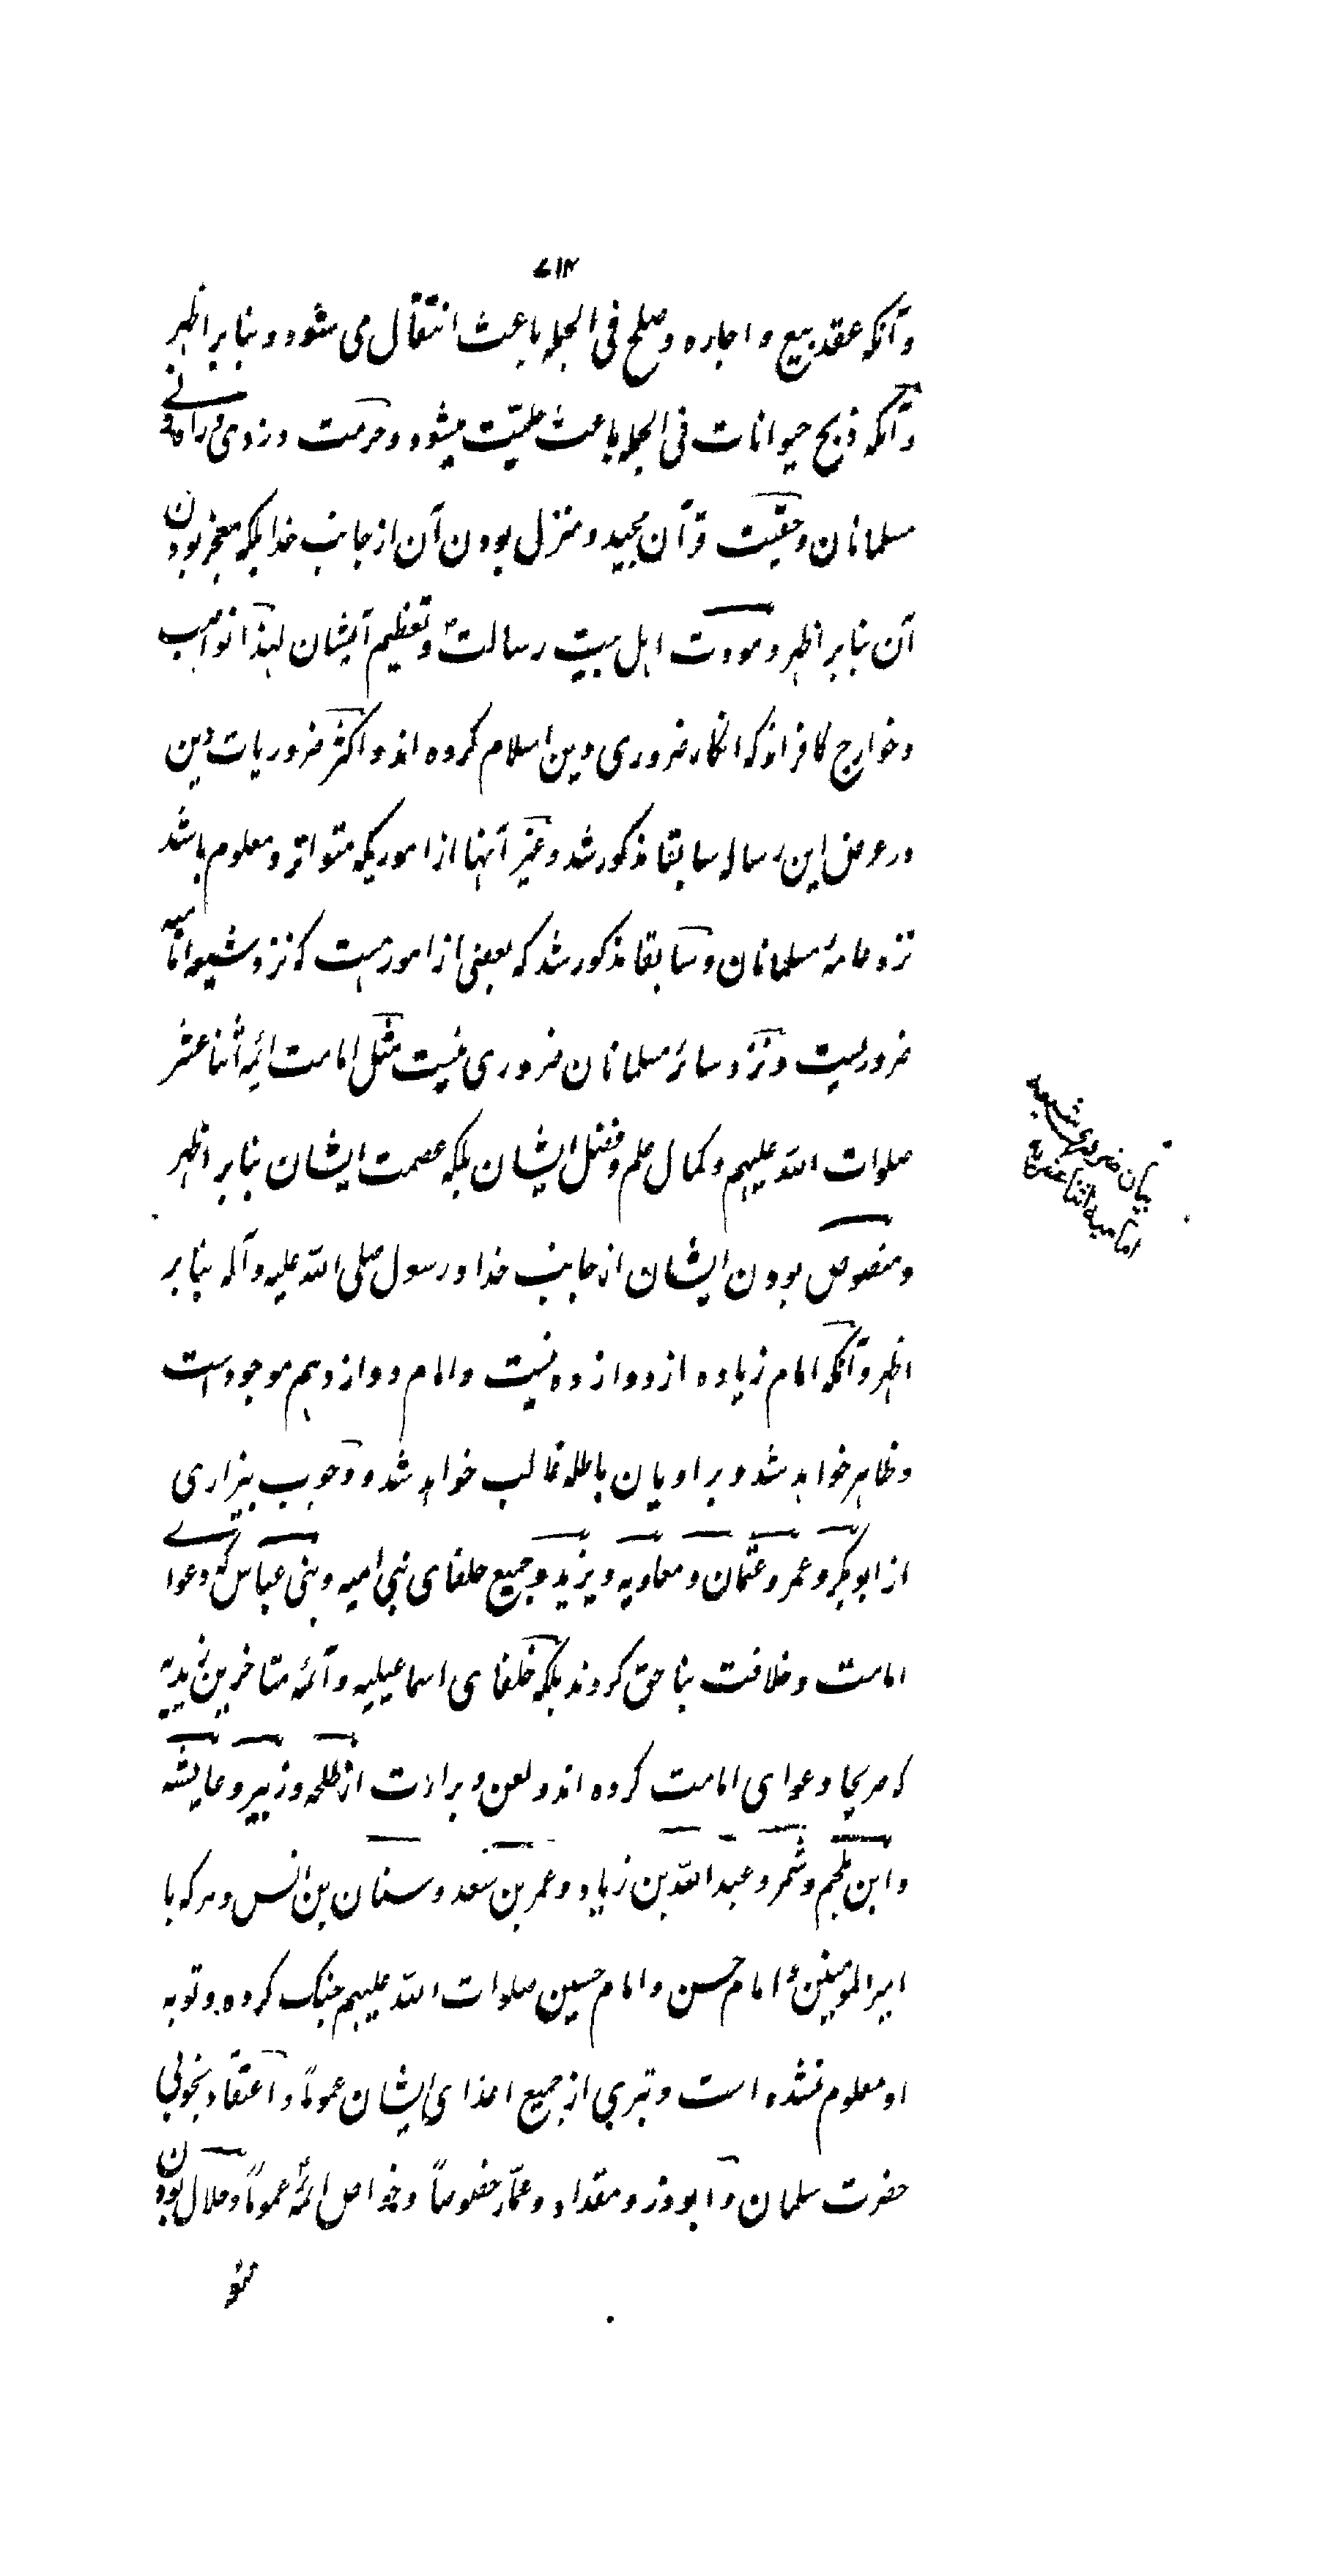 ۷۱۴
و آنکه عقد بیع و اجاره و صلح فی الجمله باعث انتقال می شود و بنابر اظهر
و آنکه ذبح حیوانات فی الجمله باعث حلیّت میشود و حرمت دزدی و راه زنے
مسلمانان و حقیت قرآن مجید و منزل بودن آن از جانب خدا بلکه معجز بودن
آن بنابر اظهر و مودت اهل بیت رسالتؐ و تعظیم ایشان لهذا نواصب
و خوارج کافر اند که انکار ضروری دین اسلام کرده اند و اکثر ضروریات دین
در عرض این رساله سابقا مذکور شد و غیر آنها از اموریکه متواتر و معلوم باشد
نزد عامهٔ مسلمانان و سابقا مذکور شد که بعضی از امور هست که نزد شیعه امامیه
ضروریست و نزد سائر مسلمانان ضروری نیست مثل امامت ائمه اثنا عشر
صلوات الله علیهم و کمال علم و فضل ایشان بلکه عصمت ایشان بنابر اظهر
و منصوص بودن ایشان از جانب خدا و رسول صلی الله علیه و آله بنابر
اظهر و آنکه امام زیاده از دوازده نیست و امام دوازدهم موجود است
و ظاهر خواهد شد و بر ادیان باطله غالب خواهد شد و وجوب بیزاری
از ابوبکر و عمر و عثمان و معاویه و یزید و جمیع خلفای بنی امیه و بنی عباس که دعوائے
امامت و خلافت بناحق کردند بلکه خلفای اسماعیلیه و ائمه متاخرین زیدیه
که صریحا دعوای امامت کرده اند و لعن و برائت از طلحه و زبیر و عایشه
و ابن ملجم و شمر و عبد الله بن زیاد و عمر بن سعد و سنان بن انس و هر که با
امیر المومنین و امام حسن و امام حسین صلوات الله علیهم جنگ کرده و توبه
او معلوم نشده است و تبری از جمیع اعدای ایشان عموماً و اعتقاد بخوبی
حضرت سلمان و ابوذر و مقداد و عمّار خصوصاً و خواص ائمهؑ عموماً و حلال بودن
بیان ضروری شیعه
امامیه اثنا عشریه